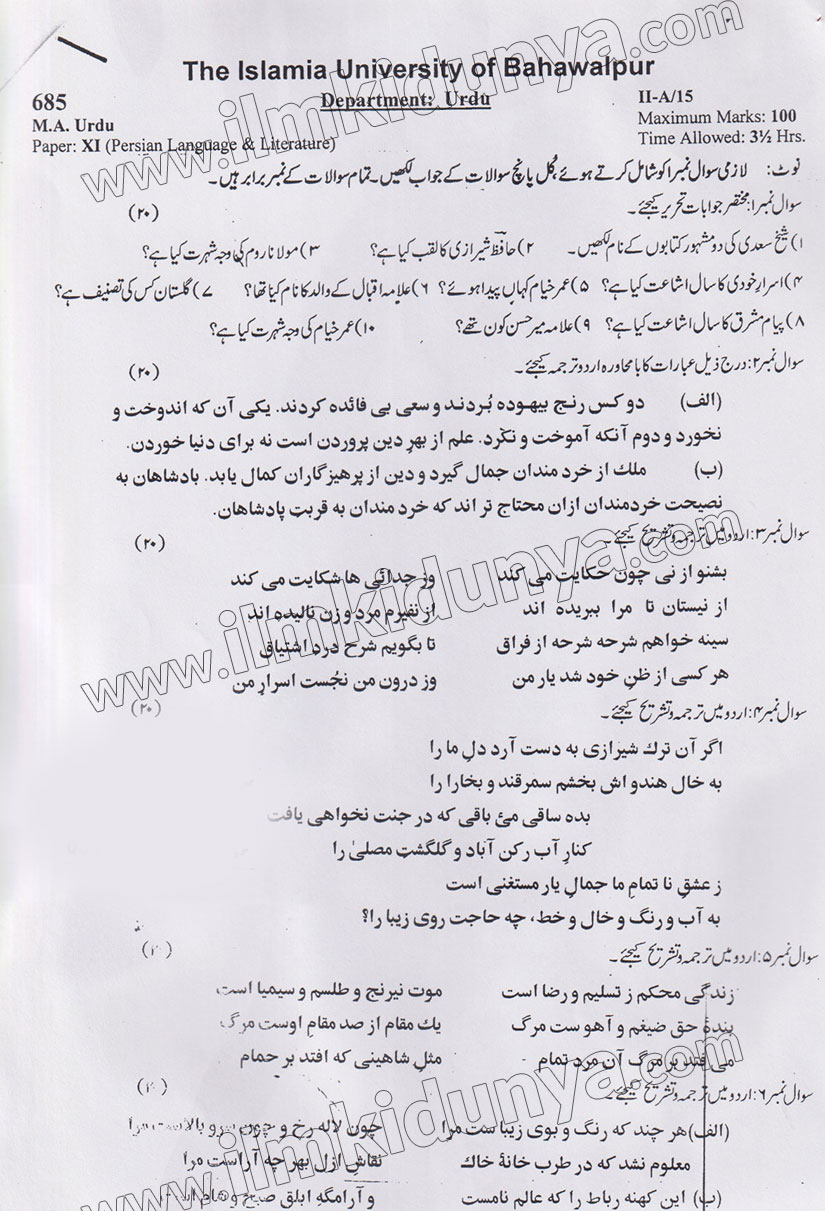 The Islamia University of Bahawalpur
685 Department: Urdu II-A/15
M.A. Urdu Maximum Marks: 100
Paper: XI (Persian Language & Literature) Time Allowed: 3½ Hrs.
نوٹ: لازمی سوال نمبر۱ کو شامل کرتے ہوئے، کُل پانچ سوالات کے جواب لکھیں۔ تمام سوالات کے نمبر برابر ہیں۔
سوال نمبر۱: مختصر جوابات تحریر کیجئے۔ (۲۰)
۱) شیخ سعدی کی دو مشہور کتابوں کے نام لکھیں۔ ۲) حافظ شیرازی کا لقب کیا ہے؟ ۳) مولانا روم کی وجہ شہرت کیا ہے؟
۴) اسرارِ خودی کا سال اشاعت کیا ہے؟ ۵) عمر خیام کہاں پیدا ہوئے؟ ۶) علامہ اقبال کے والد کا نام کیا تھا؟ ۷) گلستان کس کی تصنیف ہے؟
۸) پیام مشرق کا سال اشاعت کیا ہے؟ ۹) علامہ میر حسن کون تھے؟ ۱۰) عمر خیام کی وجہ شہرت کیا ہے؟
سوال نمبر۲: درج ذیل عبارات کا بامحاورہ اردو ترجمہ کیجئے۔ (۲۰)
(الف) دو کس رنج بیهوده بُردند و سعی بی فائده کردند. یکی آن که اندوخت و
نخورد و دوم آنکه آموخت و نکرد. علم از بهرِ دین پروردن است نه برای دنیا خوردن.
(ب) ملك از خرد مندان جمال گیرد و دین از پرهیزگاران کمال یابد. بادشاهان به
نصیحت خردمندان ازان محتاج تر اند که خرد مندان به قربتِ پادشاهان.
سوال نمبر۳: اردو میں ترجمہ و تشریح کیجئے۔ (۲۰)
بشنو از نی چون حکایت می کند وز جدائی ها شکایت می کند
از نیستان تا مرا ببریده اند از نفیرم مرد و زن نالیده اند
سینه خواهم شرحه شرحه از فراق تا بگویم شرح دردِ اشتیاق
هر کسی از ظنِ خود شد یار من وز درون من نجُست اسرارِ من
سوال نمبر۴: اردو میں ترجمہ و تشریح کیجئے۔ (۲۰)
اگر آن ترك شیرازی به دست آرد دلِ ما را
به خال هندو اش بخشم سمرقند و بخارا را
بده ساقی مئ باقی که در جنت نخواهی یافت
کنارِ آب رکن آباد و گلگشتِ مصلیٰ را
ز عشقِ نا تمامِ ما جمالِ یار مستغنی است
به آب و رنگ و خال و خط، چه حاجت روی زیبا را؟
سوال نمبر۵: اردو میں ترجمہ و تشریح کیجئے۔ (۲۰)
زندگی محکم ز تسلیم و رضا است موت نیرنج و طلسم و سیمیا است
بندۂ حق ضیغم و آهو ست مرگ یك مقام از صد مقامِ اوست مرگ
می فتد بر مرگ آن مرد تمام مثلِ شاهینی که افتد بر حمام
سوال نمبر۶: اردو میں ترجمہ و تشریح کیجئے۔ (۲۰)
(الف) هر چند که رنگ و بوی زیبا ست مرا چون لاله رخ و چون سرو بالاست مرا
معلوم نشد که در طرب خانۂ خاك نقاشِ ازل بهر چه آراست مرا
(ب) این کهنه رباط را که عالم نامست و آرامگهِ ابلق صبح و شام است
www.ilmkidunya.com
www.ilmkidunya.com
www.ilmkidunya.com
www.ilmkidunya.com